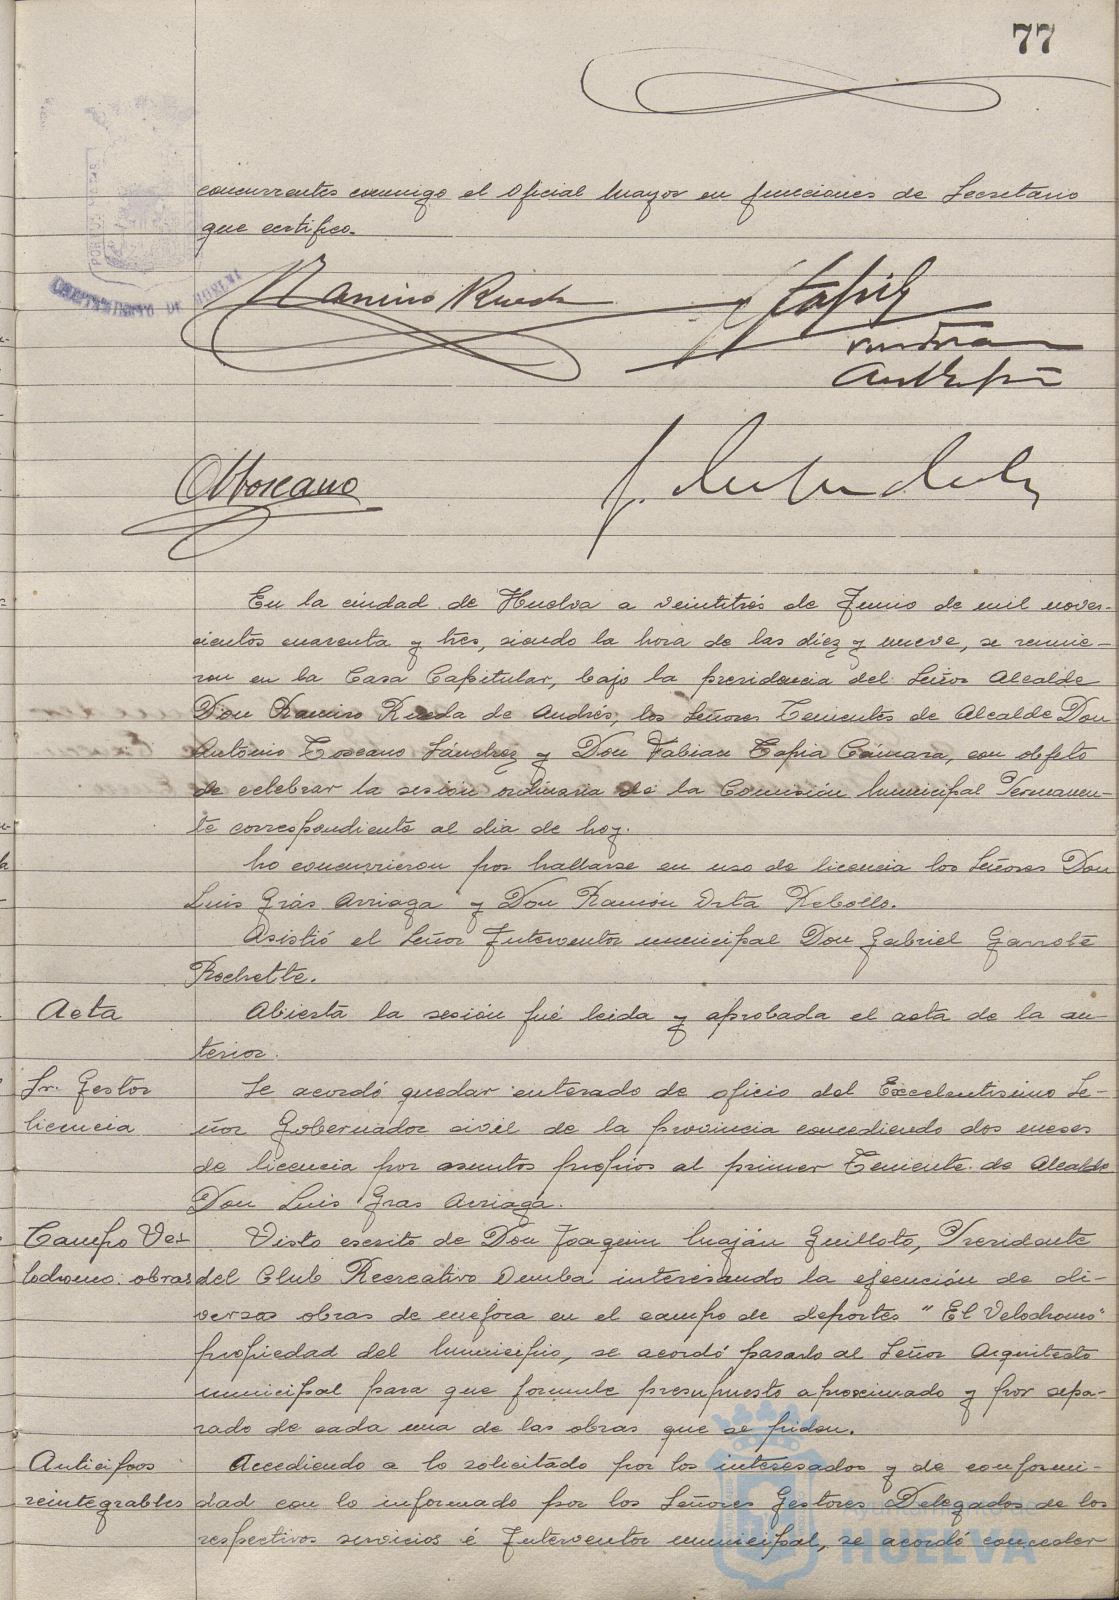 77
concurrentes conmigo el Oficial Mayor en funciones de Secretario
que certifico.
Ramiro Rueda
Toscano
En la ciudad de Huelva a veintitrés de Junio de mil nove-
cientos cuarenta y tres, siendo la hora de las diez y nueve, se reunie-
ron en la Casa Capitular, bajo la presidencia del Señor Alcalde
Don Ramiro Rueda de Andrés, los Señores Tenientes de Alcalde Don
Antonio Toscano Sánchez y Don Fabian Tapia Cámara, con objeto
de celebrar la sesión ordinaria de la Comisión Municipal Permanen-
te correspondiente al dia de hoy.
No concurrieron por hallarse en uso de licencia los Señores Don
Luis Grás Arriaga y Don Ramón Orta Rebollo.
Asistió el Señor Interventor municipal Don Gabriel Garrote
Rochette.
Acta
Abierta la sesión fué leida y aprobada el acta de la an-
terior.
Sr. Gestor
licencia
Se acordó quedar enterado de oficio del Excelentisimo Se-
ñor Gobernador civil de la provincia concediendo dos meses
de licencia por asuntos propios al primer Teniente de Alcalde
Don Luis Gras Arriaga.
Campo Ve-
lodromo. obras
Visto escrito de Don Joaquin Maján Guilloto, Presidente
del Club Recreativo Onuba interesando la ejecución de di-
versas obras de mejora en el campo de deportes "El Velodromo"
propiedad del Municipio, se acordó pasarlo al Señor Arquitecto
municipal para que formule presupuesto aproximado y por sepa-
rado de cada una de las obras que se piden.
Anticipos
reintegrables
Accediendo a lo solicitado por los interesados y de conformi-
dad con lo informado por los Señores Gestores Delegados de los
respectivos servicios é Interventor municipal, se acordó conceder
Ayuntamiento de
HUELVA